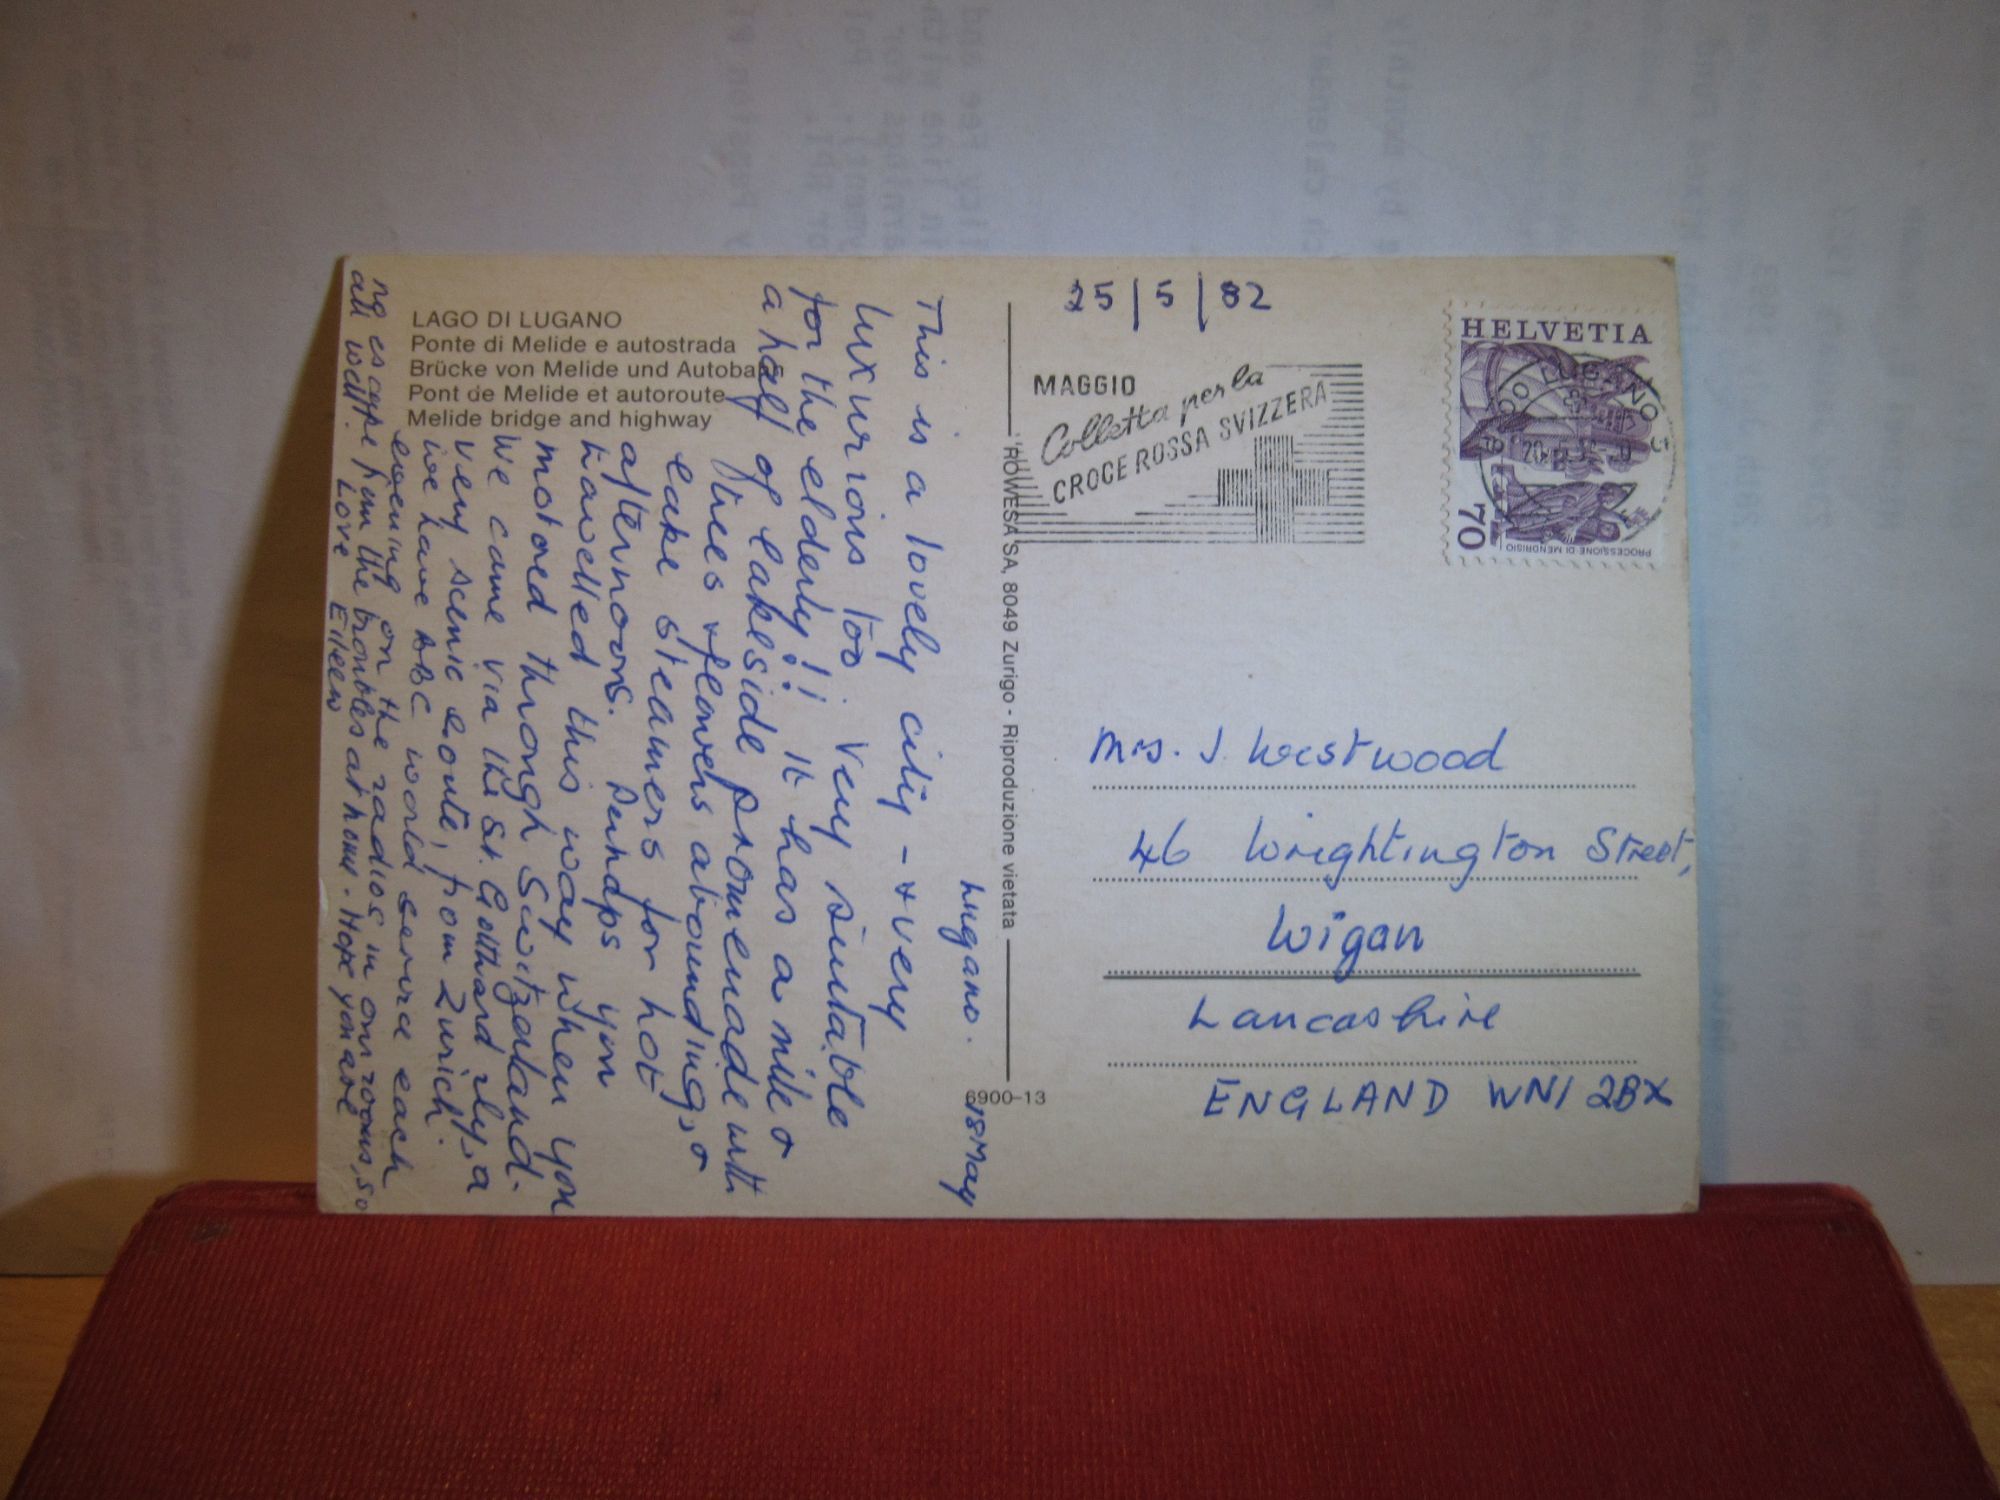 LAGO DI LUGANO
Ponte di Melide e autostrada
Brücke von Melide und Autobahn
Pont de Melide et autoroute
Melide bridge and highway
Lugano.
18 May
This is a lovely city - & very
luxurious too. Very suitable
for the elderly!! It has a mile &
a half of lakeside promenade with
trees & flowers abounding, &
lake steamers for hot
afternoons. Perhaps you
travelled this way when you
motored through Switzerland.
We came via the St. Gotthard rly, a
very scenic route, from Zurich.
We have BBC world service each
evening on the radios in our rooms, so
no escape from the troubles at home. Hope you are
all well. Love Eileen
'ROWESA' SA, 8049 Zurigo - Riproduzione vietata
6900-13
25/5/82
MAGGIO
Colletta per la
CROCE ROSSA SVIZZERA
HELVETIA
LUGANO
70
PROCESSIONE DI MENDRISIO
Mrs. J. Westwood
46 Wrightington Street,
Wigan
Lancashire
ENGLAND WN1 2BX